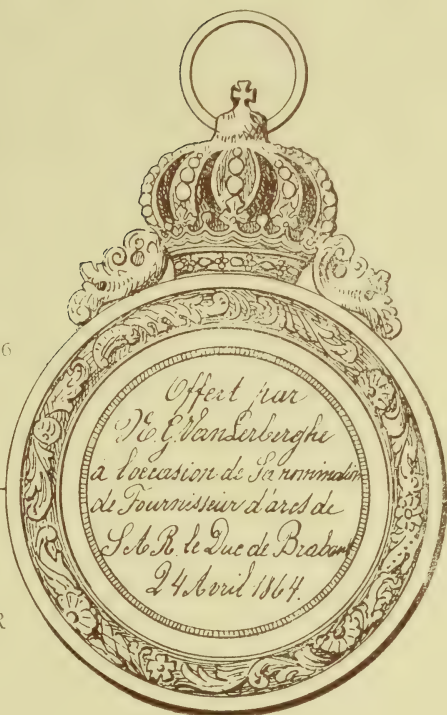 Offert par
Mr. G. Van Lerberghe
à l'occasion de Sa nomination
de Fournisseur d'arcs de
S.A.R. le Duc de Brabant
24 Avril 1864.
6
R